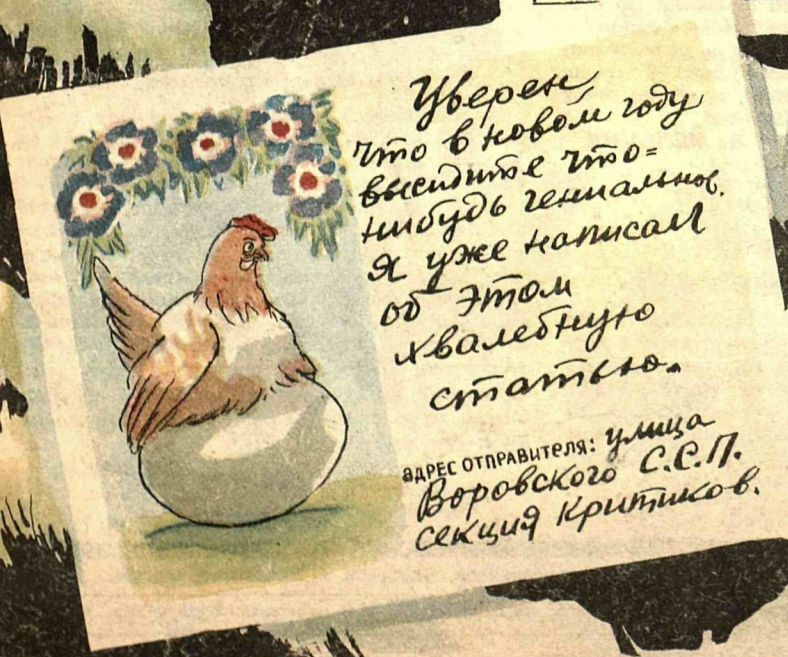 Уверен,
что в новом году
высидите что=
нибудь гениальное.
Я уже написал
об этом
хвалебную
статью.
адрес отправителя: улица
Воровского С.С.П.
секция Критиков.